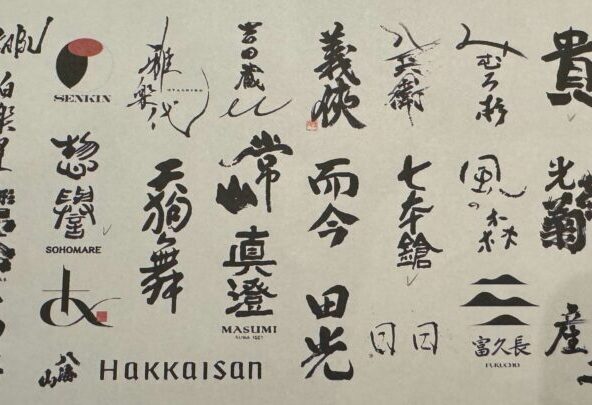 SENKIN
惣譽
SOHOMARE
八海山
HAKKAISAN
雅楽代
UTASHIRO
天狗舞
吉田蔵u
常山
真澄
MASUMI
義侠
而今
田光
八兵衛
七本鎗
日日
みむろ杉
風の森
富久長
FUKUCHO
貴
光
菊
産